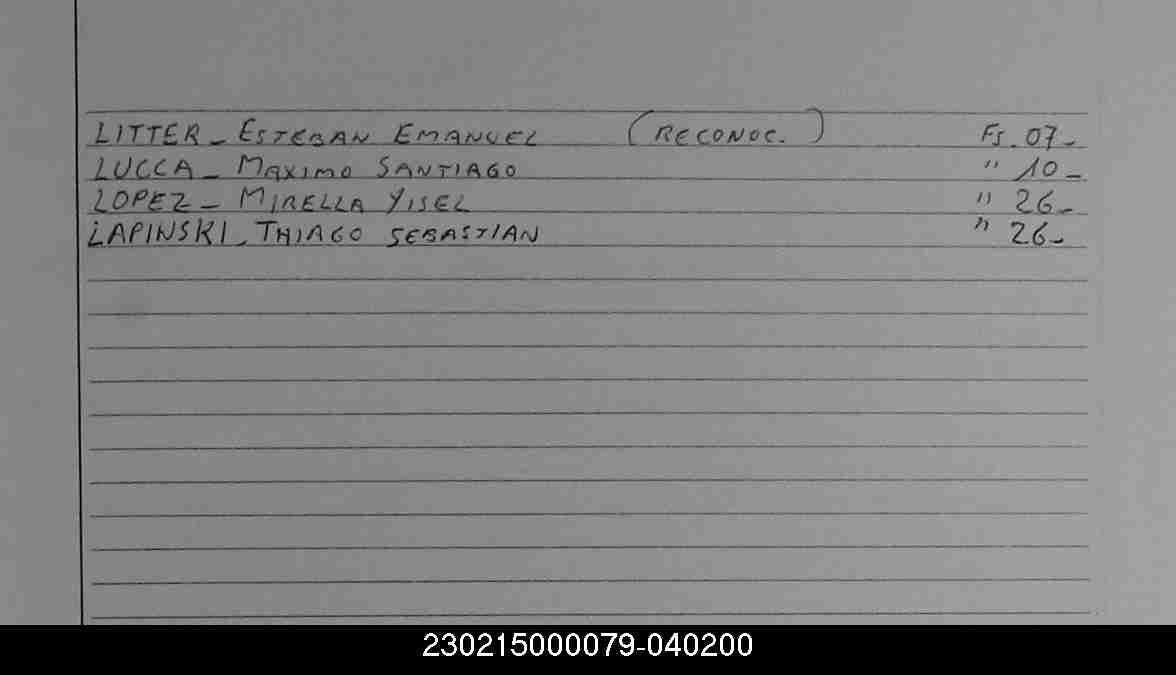 LITTER_ ESTEBAN EMANUEL (RECONOC.) Fs. 07_
LUCCA_ MAXIMO SANTIAGO " 10_
LOPEZ_ MIRELLA YISEL " 26_
LAPINSKI_ THIAGO SEBASTIAN " 26_
230215000079-040200